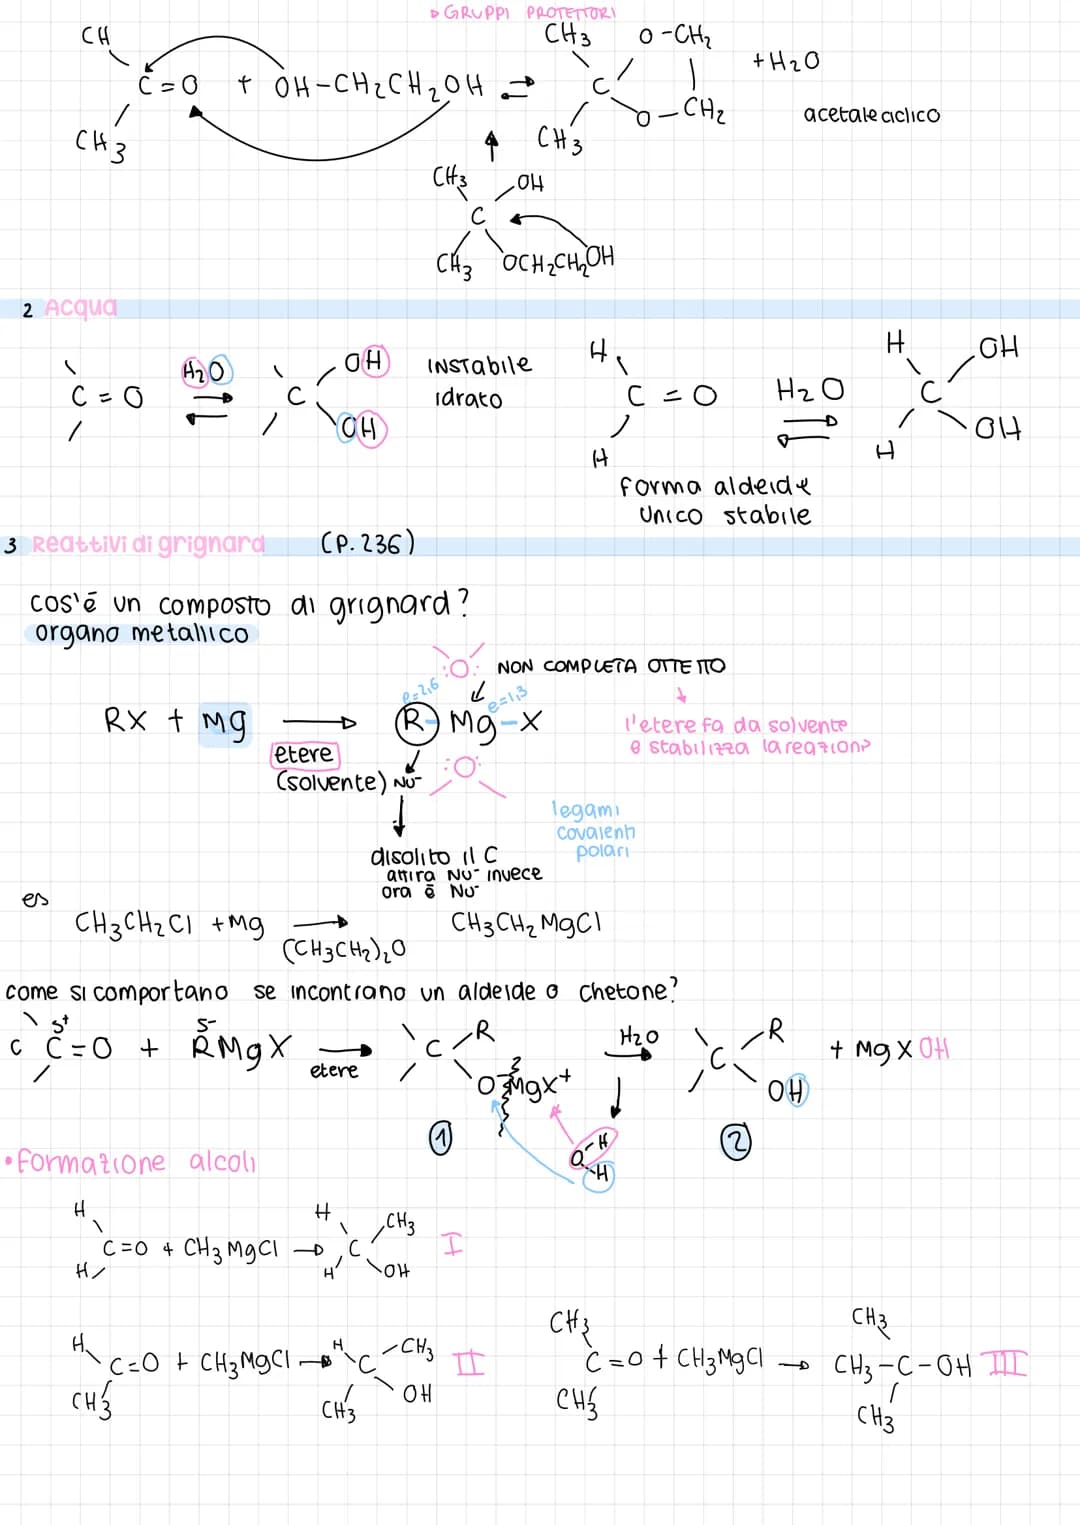 ▷ GRUPPI PROTETTORI
CH
CH3
C = O + OH-CH2CH2OH ⇌
CH3 O-CH2
C
CH3 O-CH2
+ H2O
acetale ciclico
CH3 OH
C
CH3 OCH2CH2OH
2 Acqua
C = O H2O ⇌ C OH OH
INSTABILE
idrato
H
C = O H2O ⇌ C OH
H H H OH
forma aldeide
unico stabile
3 Reattivi di grignard (P. 236)
cos'é un composto di grignard?
organo metallico
:O: NON COMPLETA OTTETTO
e=2,6 e=1,3
RX + Mg → R- Mg-X
etere
(solvente) Nu-
:O:
l'etere fa da solvente
e stabilizza la reazione
legami
covalenti
polari
disolito il C
attira Nu- invece
ora è Nu-
es
CH3CH2Cl + Mg → CH3CH2MgCl
(CH3CH2)2O
come si comportano se incontrano un aldeide o chetone?
δ+ δ-
C C=O + RMgX → C R H2O → C R + MgXOH
etere O-Mgx+ OH
① O-H H ②
•Formazione alcoli
H H CH3
C=O + CH3MgCl → C I
H H OH
H H CH3
C=O + CH3MgCl → C II
CH3 CH3 OH
CH3 CH3
C=O + CH3MgCl → CH3-C-OH III
CH3 CH3